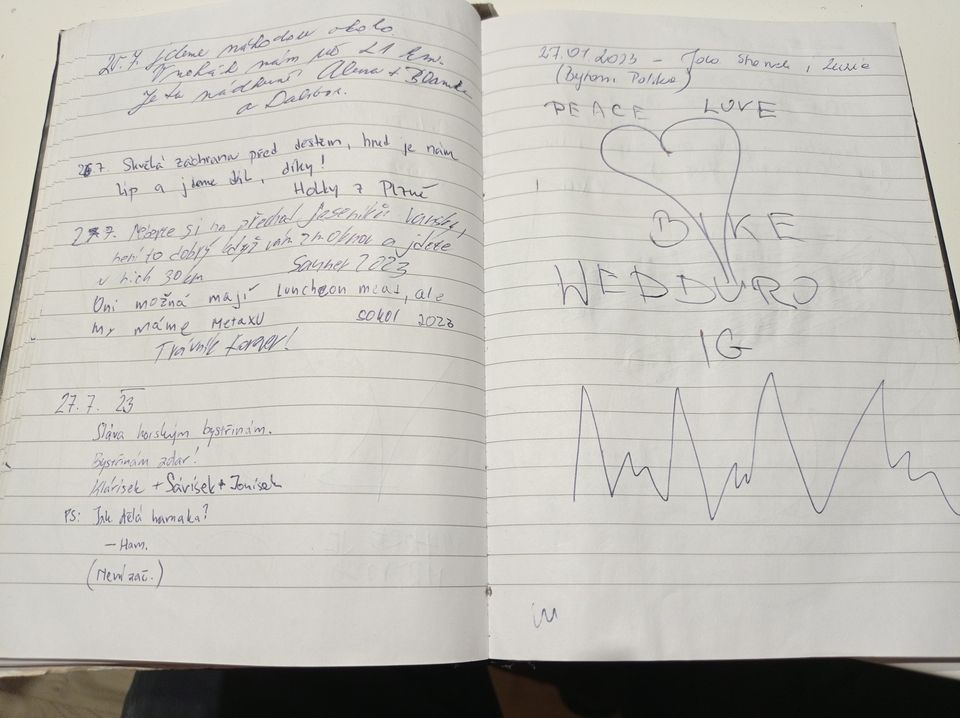 25.7. Jdeme náhodou okolo.
V nohách nám už 21 km.
Je tu nádherně Alena + Blanka
a Dalibor.
26.7. Skvělá záchrana před deštěm, hned je nám
líp a jdeme dál, díky!
Holky z Plzně
27.7. Neberte si na přechod Jeseníků
není to dobrý když vám zmoknou a jdete
v nich 30 km
Summer 2023
Oni možná mají Luncheon meat, ale
my máme Metaxu
sokol 2023
Trávník forever!
27.7. 23
Sláva horským bystřinám.
Bystřinám zdar!
Klárisek + Sávísek + Jonísek
PS: Jak dělá hamaka?
– Ham.
(Není zač.)
27.01.2023 –
(Bytom Polska)
PEACE LOVE
BIKE
WEDDURO
IG